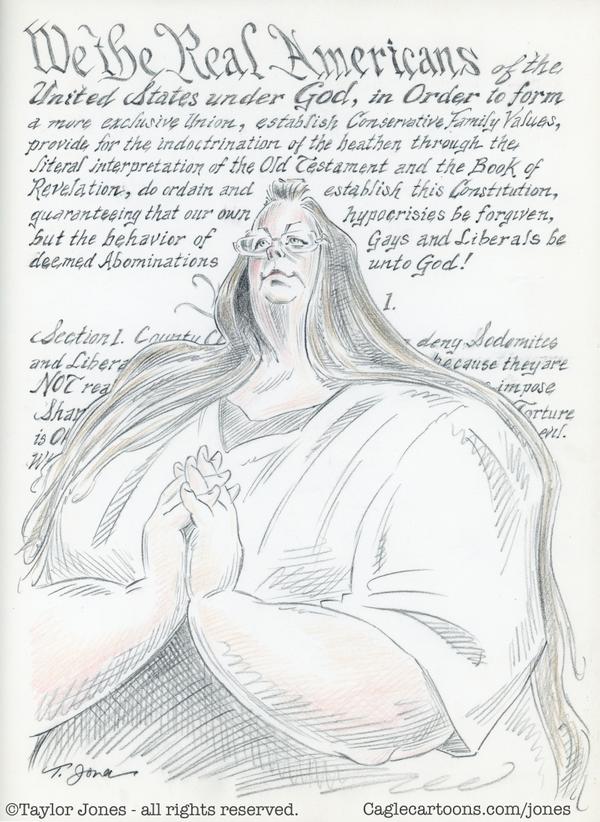 We the Real Americans of the
United States under God, in Order to form
a more exclusive Union, establish Conservative Family Values,
provide for the indoctrination of the heathen through the
literal interpretation of the Old Testament and the Book of
Revelation, do ordain and establish this Constitution,
guaranteeing that our own hypocrisies be forgiven,
but the behavior of Gays and Liberals be
deemed Abominations unto God!
1.
Section 1. County Cl deny Sodomites
and Libera because they are
NOT rea impose
Shar Torture
is O evil.
W
T. Jones
©Taylor Jones - all rights reserved. Caglecartoons.com/jones